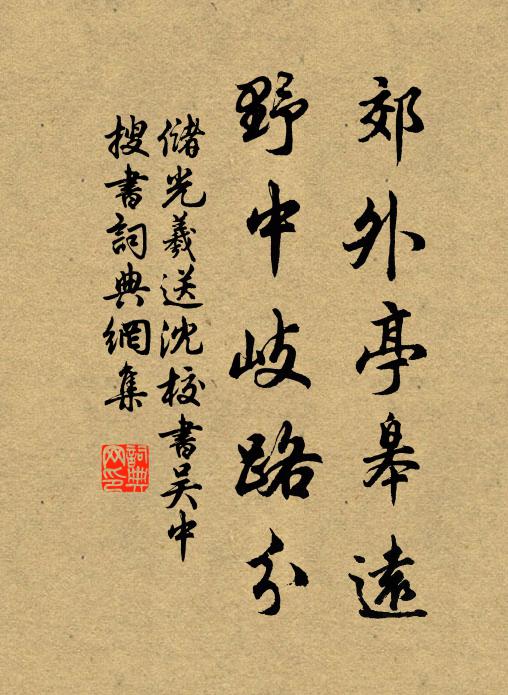 郊外亭皋遠
野中岐路分
儲光羲送沈校書吳中
搜書詞典網集
詞典
网印